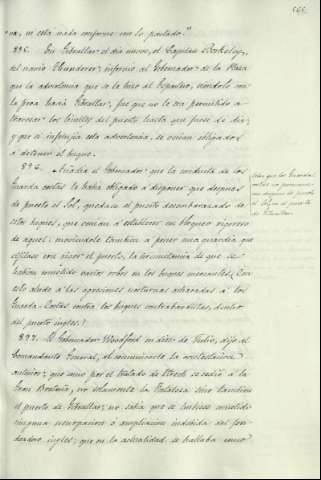 na, ni esta nada conforme con lo pactado."
895. En Gibraltar el dia nueve, el Capitan Berkeley,
del navio Thunderer, informó al Gobernador de la Plaza
que la advertencia que se le hizo al Español, viéndole con
la proa hacia Gibraltar, fué que no le era permitido a-
travesar los limites del puerto hasta que fuese de dia;
y que si infringia esta advertencia, se verian obligados
a detener el buque.
896. Añadia el Gobernador que la conducta de los
Guarda costas le habia obligado a disponer que despues
de puesto el Sol, quedara el puerto desembarazado de
estos buques, que venian a establecer un bloqueo rigoroso
de aquel: moviendole tambien a poner una guardia que
vigilase con rigor el puerto, la circunstancia de que se
habian cometido varios robos en los buques mercantes. Con
esto alude a las agresiones nocturnas achacadas a los
Guarda-Costas contra los buques contrabandistas, dentro
del puerto ingles.
897. El Gobernador Woodford en doce de Julio, dijo al
Comandante General, al recibimiento la contestacion
anterior; que como por el tratado de Utrech se cedió a la
Gran Bretaña, no solamente la Fortaleza sino tambien
el puerto de Gibraltar; no sabia que se hubiese cometido
ninguna usurpacion o ampliacion indebida del fon-
deadero ingles; que en la actualidad se hallaba como
que los Guarda
costas no
despues de puesto
el Sol en el puerto
de Gibraltar.